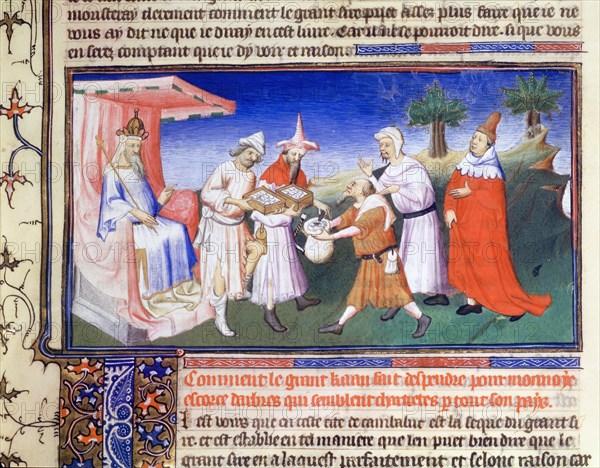 monsteray clerement comment le grant sire puet assez plus faire que ie ne
vous ay dit ne que ie diray en cest liure. Car nulz ne pouroit dire. si que vous
en serez comptant que ie dy voir et raison
Comment le grant kaan fait despendre pour monnoye
escorce darbres qui semblent chartretes p tout son pays.
l est vours que en ceste cite de cambaluc est la seque du grant si
re. et est establie en tel maniere que len puet bien dire que le
grant sire en a larquest parfaitement et selonc raison. car